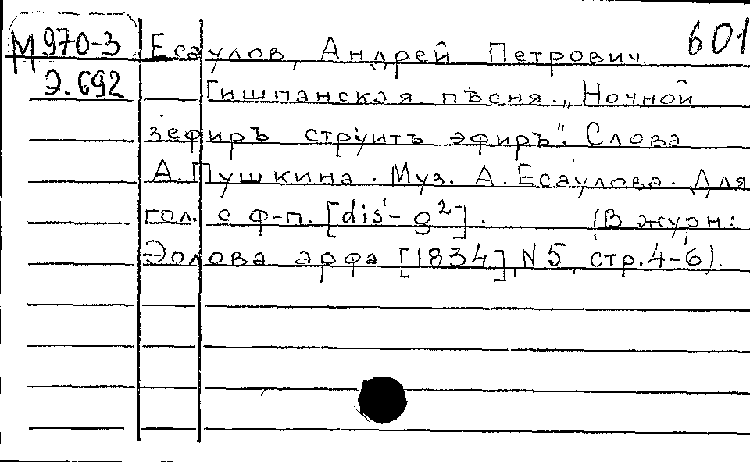 М 970-3 Есаулов, Андрей Петрович 601
Э.692 Гишпанская пѣсня „Ночной
зефиръ струитъ эфиръ". Слова
А. Пушкина. Муз. А. Есаулова. Для
гол. с ф-п. [dis¹-g²]. (В журн:
Эолова арфа [1834], N5, стр.4-6).